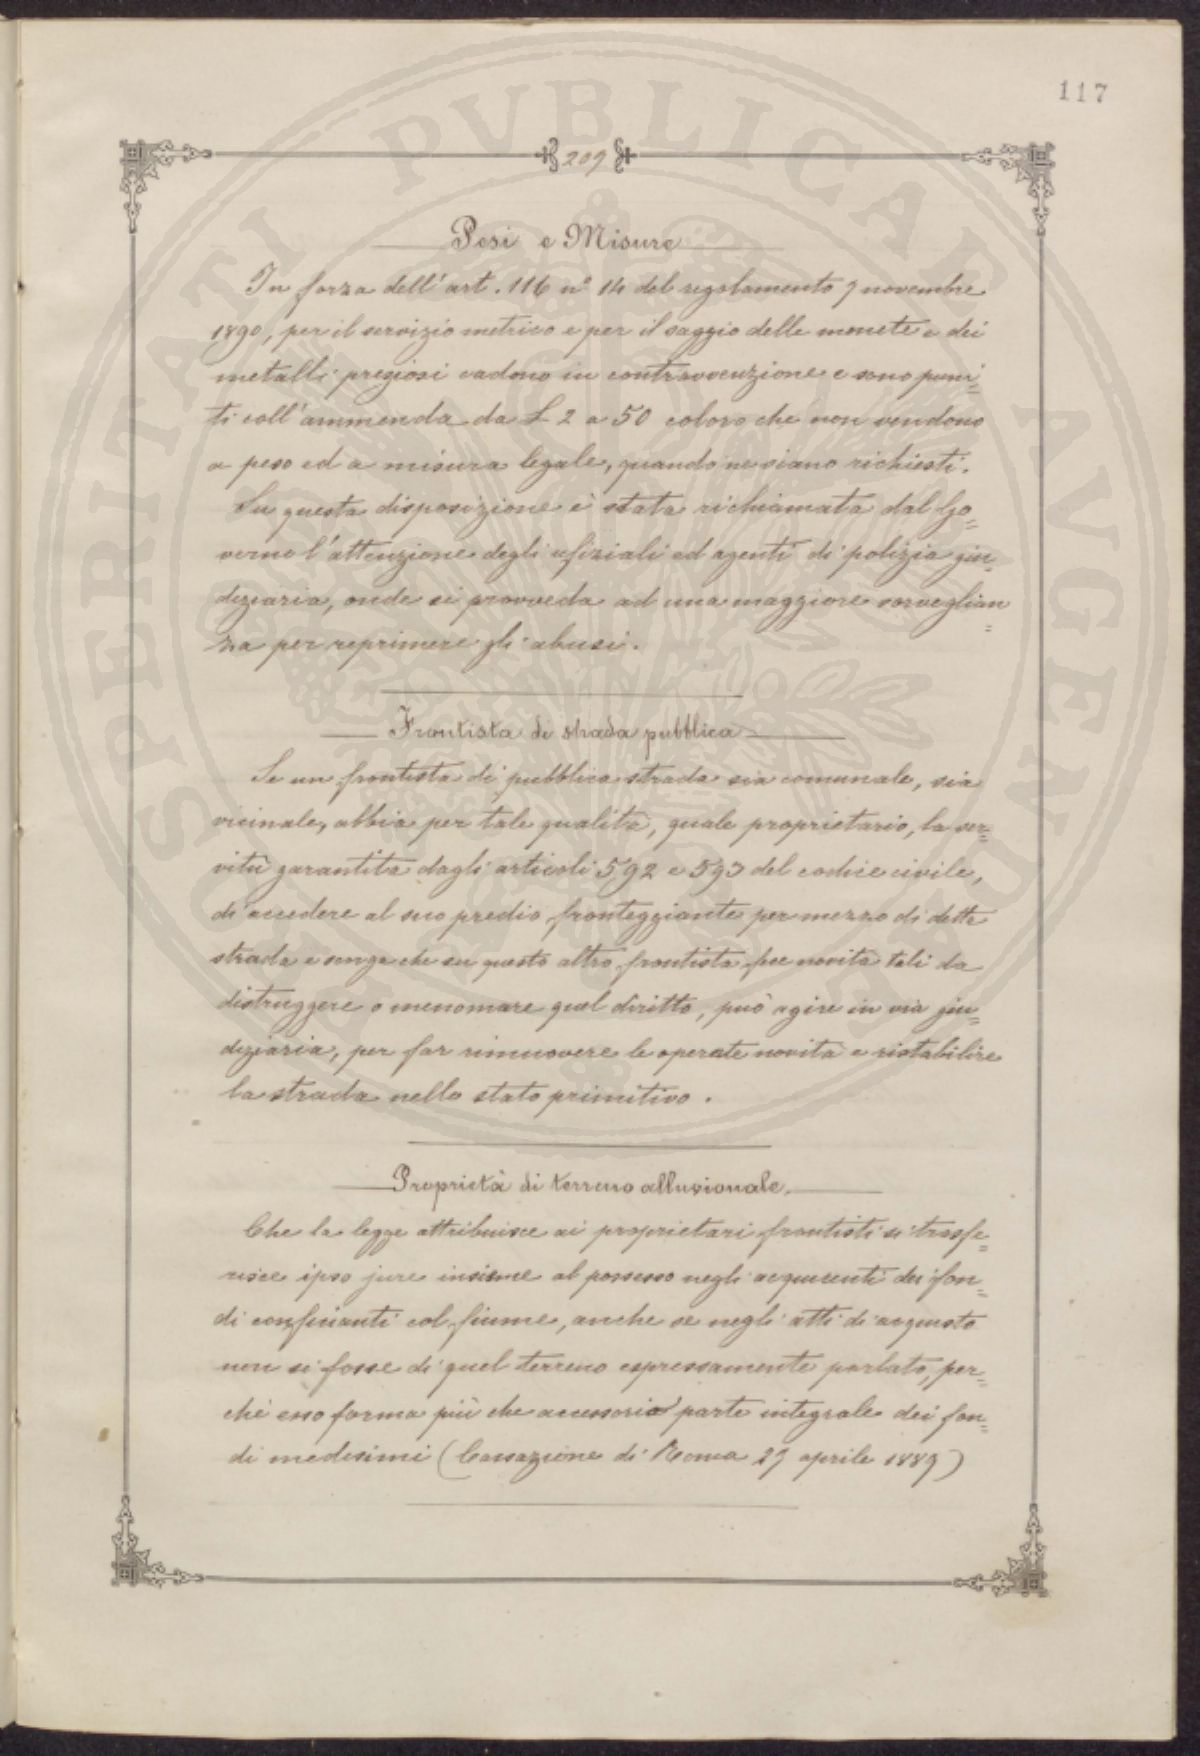 117
209
Pesi e Misure
In forza dell'art. 116 n° 14 del regolamento 7 novembre
1890, per il servizio metrico e per il saggio delle monete e dei
metalli preziosi cadono in contravvenzione e sono puni=
ti coll'ammenda da £ 2 a 50 coloro che non vendono
a peso ed a misura legale, quando ne siano richiesti.
Su questa disposizione è stata richiamata dal Go=
verno l'attenzione degli ufiziali ed agenti di polizia giu=
diziaria, onde si provveda ad una maggiore sorveglian=
za per reprimere gli abusi.
Frontista di strada pubblica
Se un frontista di pubblica strada sia comunale, sia
vicinale, abbia per tale qualità, quale proprietario, la ser=
vitù garantita dagli articoli 592 e 593 del codice civile,
di accedere al suo predio fronteggiante per mezzo di detta
strada e senza che su questo altro frontista fece novità tali da
distruggere o menomare quel diritto, può agire in via giu=
diziaria, per far rimuovere le operate novità e ristabilire
la strada nello stato primitivo.
Proprietà di terreno alluvionale.
Che la legge attribuisce ai proprietari frontisti si trasfe=
risce ipso jure insieme al possesso negli acquirenti dei fon=
di confinanti col fiume, anche se negli atti di acquisto
non si fosse di quel terreno espressamente parlato, per=
chè esso forma più che accessorio parte integrale dei fon=
di medesimi (Cassazione di Roma 29 aprile 1889)
SPERITATI PVBLICAE AVGENDAE